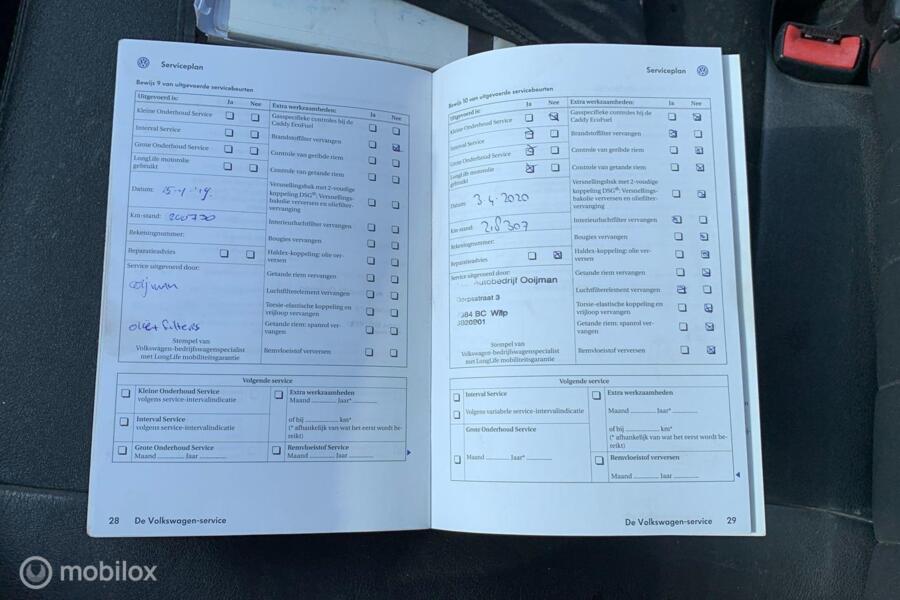 Serviceplan
Bewijs 9 van uitgevoerde servicebeurten
Uitgevoerd is: Ja Nee
Kleine Onderhoud Service
Interval Service
Grote Onderhoud Service
LongLife motorolie
gebruikt
Datum:
Km-stand: 200730
Rekeningnummer:
Reparatieadvies
Service uitgevoerd door:
Ooijman
olie + filters
Stempel van
Volkswagen-bedrijfswagenspecialist
met LongLife mobiliteitsgarantie
Extra werkzaamheden: Ja Nee
Gasspecifieke controles bij de
Caddy EcoFuel
Brandstoffilter vervangen
Controle van geribde riem
Controle van getande riem
Versnellingsbak met 2-voudige
koppeling DSG®: Versnellings-
bakolie verversen en oliefilter-
vervanging
Interieurluchtfilter vervangen
Bougies vervangen
Haldex-koppeling: olie ver-
versen
Getande riem vervangen
Luchtfilterelement vervangen
Torsie-elastische koppeling en
vrijloop vervangen
Getande riem: spanrol ver-
vangen
Remvloeistof verversen
Volgende service
Kleine Onderhoud Service
volgens service-intervalindicatie
Interval Service
volgens service-intervalindicatie
Grote Onderhoud Service
Maand Jaar*
Extra werkzaamheden
Maand Jaar*
of bij km*
(* afhankelijk van wat het eerst wordt be-
reikt)
Remvloeistof Service
Maand Jaar
28 De Volkswagen-service
Serviceplan
Bewijs 10 van uitgevoerde servicebeurten
Uitgevoerd is: Ja Nee
Kleine Onderhoud Service
Interval Service
Grote Onderhoud Service
LongLife motorolie
gebruikt
Datum: 3.4.2020
Km-stand: 218307
Rekeningnummer:
Reparatieadvies
Service uitgevoerd door:
Autobedrijf Ooijman
Dorpsstraat 3
7384 BC Wilp
Stempel van
Volkswagen-bedrijfswagenspecialist
met LongLife mobiliteitsgarantie
Extra werkzaamheden: Ja Nee
Gasspecifieke controles bij de
Caddy EcoFuel
Brandstoffilter vervangen
Controle van geribde riem
Controle van getande riem
Versnellingsbak met 2-voudige
koppeling DSG®: Versnellings-
bakolie verversen en oliefilter-
vervanging
Interieurluchtfilter vervangen
Bougies vervangen
Haldex-koppeling: olie ver-
versen
Getande riem vervangen
Luchtfilterelement vervangen
Torsie-elastische koppeling en
vrijloop vervangen
Getande riem: spanrol ver-
vangen
Remvloeistof verversen
Volgende service
Interval Service
Volgens variabele service-intervalindicatie
Grote Onderhoud Service
Maand Jaar*
Extra werkzaamheden
Maand Jaar*
of bij km*
(* afhankelijk van wat het eerst wordt be-
reikt)
Remvloeistof verversen
Maand Jaar
De Volkswagen-service 29
PRESS
mobilox